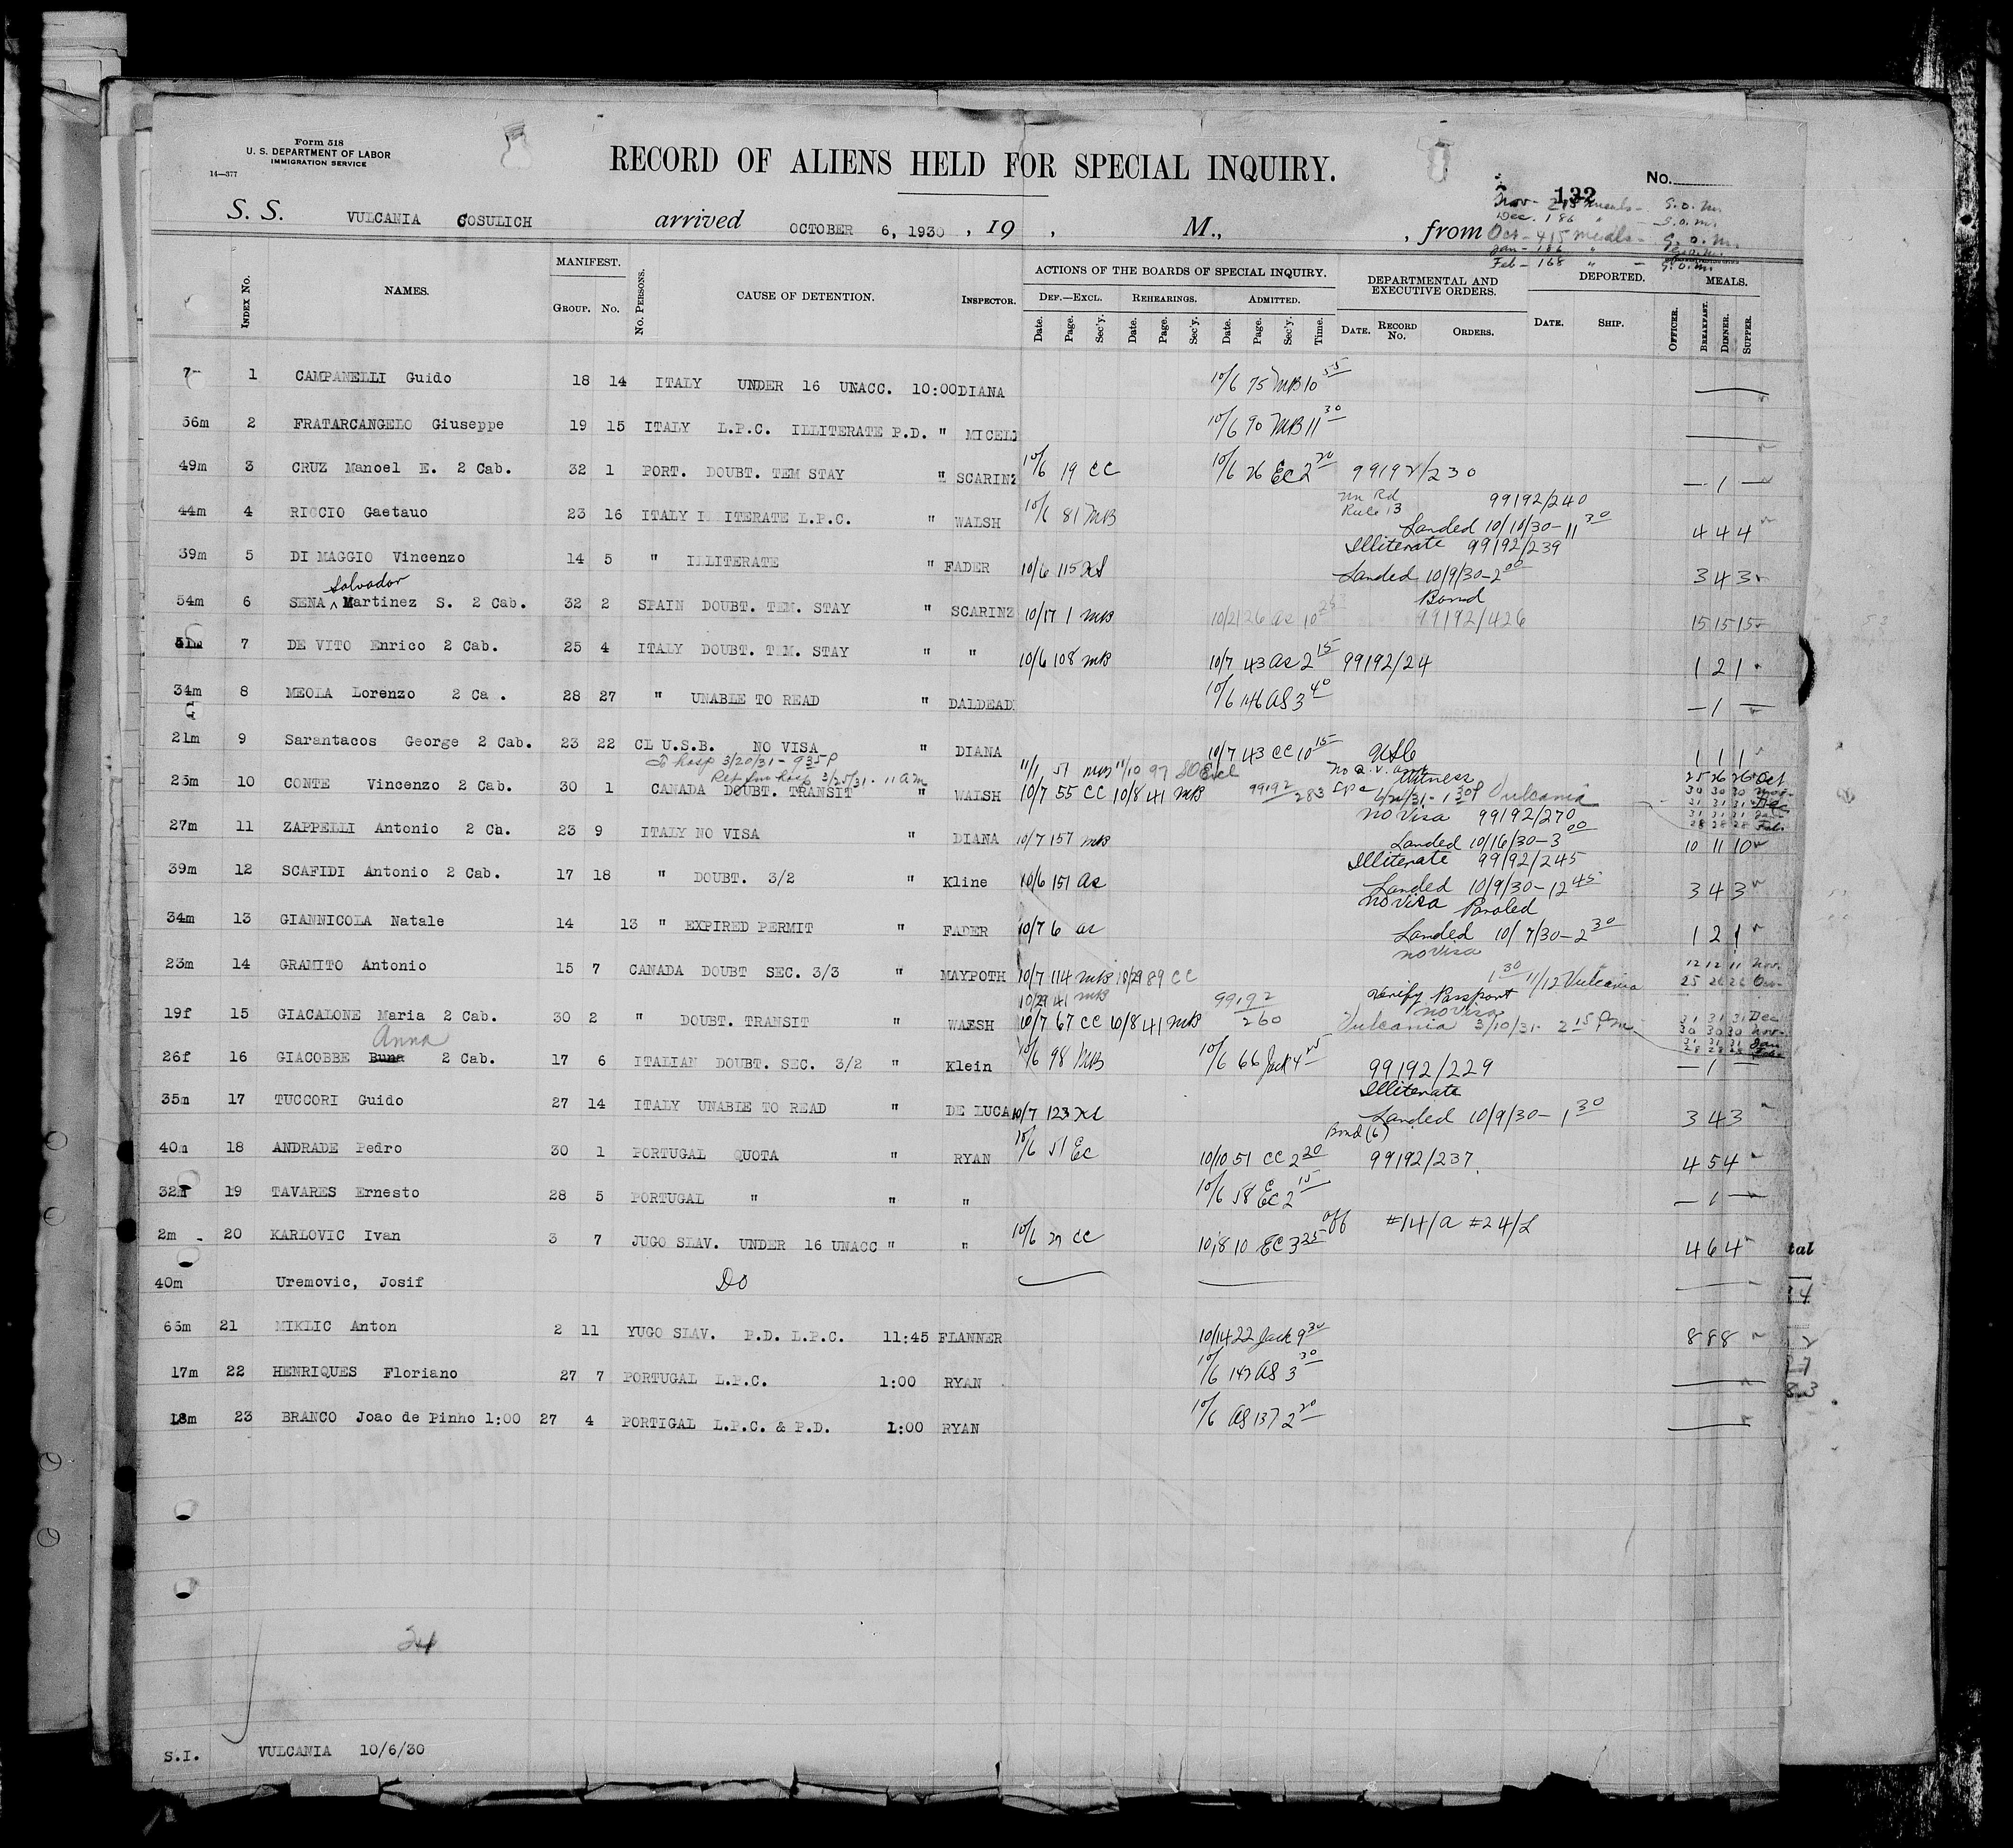 Form 518
U. S. DEPARTMENT OF LABOR
IMMIGRATION SERVICE
14—377
RECORD OF ALIENS HELD FOR SPECIAL INQUIRY.
No.
132
S. S. VULCANIA COSULICH arrived OCTOBER 6, 1930 , 19 , M., , from
Nov - meals - S.O.M.
Dec. 186 " - S.O.M.
Oct - 415 meals - S.O.M.
Jan - 186
Feb - 168 " - S.O.M.
INDEX No. NAMES. MANIFEST. GROUP. No. No. PERSONS. CAUSE OF DETENTION. INSPECTOR. ACTIONS OF THE BOARDS OF SPECIAL INQUIRY. DEF.—EXCL. REHEARINGS. ADMITTED. DEPARTMENTAL AND EXECUTIVE ORDERS. DEPORTED. MEALS.
Date. Page. Sec'y. Date. Page. Sec'y. Date. Page. Sec'y. Time. DATE. RECORD No. ORDERS. DATE. SHIP. OFFICER. BREAKFAST. DINNER. SUPPER.
1 CAMPANELLI Guido 18 14 ITALY UNDER 16 UNACC. 10:00 DIANA 10/6 75 MB 10 55
56m 2 FRATARCANGELO Giuseppe 19 15 ITALY L.P.C. ILLITERATE P.D. " MICELI 10/6 90 MB 11 30
49m 3 CRUZ Manoel E. 2 Cab. 32 1 PORT. DOUBT. TEM STAY " SCARINZ 10/6 19 CC 10/6 26 EC 2 20 99192/230 — 1 —
44m 4 RICCIO Gaetauo 23 16 ITALY I ITERATE L.P.C. " WALSH 10/6 81 MB Un Rd Rule 13 99192/240 Landed 10/10/30 - 11 30 4 4 4
39m 5 DI MAGGIO Vincenzo 14 5 " ILLITERATE " FADER 10/6 115 Illiterate 99192/239 Landed 10/9/30 - 2 00 3 4 3
Salvador
54m 6 SENA Martinez S. 2 Cab. 32 2 SPAIN DOUBT. TEM. STAY " SCARINZ 10/17 1 MB 10/21 26 as 10 25 Bond 99192/426 15 15 15
51m 7 DE VITO Enrico 2 Cab. 25 4 ITALY DOUBT. TEM. STAY " " 10/6 108 MB 10/7 43 as 2 15 99192/24 1 2 1
34m 8 MEOLA Lorenzo 2 Ca . 28 27 " UNABLE TO READ " DALDEAD 10/6 146 AS 3 40 — 1 —
21m 9 Sarantacos George 2 Cab. 23 22 CL U.S.B. NO VISA " DIANA 10/7 43 CC 10 15 USC 1 1 1
To hosp 3/20/31 - 9 35 P
Ret from hosp 3/25/31 - 11 am
11/1 51 MB 11/10 97 Witness 25 26 26 Oct
25m 10 CONTE Vincenzo 2 Cab. 30 1 CANADA DOUBT. TRANSIT " WALSH 10/7 55 CC 10/8 41 MB 99192/283 Vulcania
30 30 30 Nov
31 31 31 Dec
31 31 31 Jan
28 28 28 Feb.
27m 11 ZAPPELLI Antonio 2 Ch. 23 9 ITALY NO VISA " DIANA 10/7 157 MB No Visa 99192/270 Landed 10/16/30 - 3 00 10 11 10
39m 12 SCAFIDI Antonio 2 Cab. 17 18 " DOUBT. 3/2 " Kline 10/6 151 as Illiterate 99192/245 Landed 10/9/30 - 12 45 3 4 3
34m 13 GIANNICOLA Natale 14 13 " EXPIRED PERMIT " FADER 10/7 6 as No Visa Paroled Landed 10/7/30 - 2 30 1 2 1
23m 14 GRAMITO Antonio 15 7 CANADA DOUBT SEC. 3/3 " MAYPOTH 10/7 114 MB 10/29 89 CC No Visa 1 30 11/12 Vulcania 12 12 11 Nov. 25 26 26 Oct
10/29 41 MB 99192/260 Verify Passport No Visa
19f 15 GIACALONE Maria 2 Cab. 30 2 " DOUBT. TRANSIT " WAESH 10/7 67 CC 10/8 41 MB Vulcania 3/10/31 - 2 15 Pm
31 31 31 Dec
30 30 30 Nov
31 31 31 Jan
28 28 28 Feb
Anna
26f 16 GIACOBBE Buna 2 Cab. 17 6 ITALIAN DOUBT. SEC. 3/2 " Klein 10/6 98 MB 10/6 66 Jack 4 99192/229 — 1 —
35m 17 TUCCORI Guido 27 14 ITALY UNABLE TO READ " DE LUCA 10/7 123 Illiterate Landed 10/9/30 - 1 30 3 4 3
40m 18 ANDRADE Pedro 30 1 PORTUGAL QUOTA " RYAN 10/6 51 EC 10/10 51 CC 2 20 Bond (6) 99192/237 4 5 4
32m 19 TAVARES Ernesto 28 5 PORTUGAL " " " 10/6 58 EC 2 15 — 1 —
2m 20 KARLOVIC Ivan 3 7 JUGO SLAV. UNDER 16 UNACC " " 10/6 CC 10/8 10 EC 3 25 off #14/a #24/L 4 6 4
40m Uremovic, Josif Do
66m 21 MIKLIC Anton 2 11 YUGO SLAV. P.D. L.P.C. 11:45 FLANNER 10/14 22 Jack 9 30 8 8 8
17m 22 HENRIQUES Floriano 27 7 PORTUGAL L.P.C. 1:00 RYAN 10/6 147 AS 3 30
18m 23 BRANCO Joao de Pinho 1:00 27 4 PORTIGAL L.P.C. & P.D. 1:00 RYAN 10/6 AS 137 2 20
24
S.I. VULCANIA 10/6/30